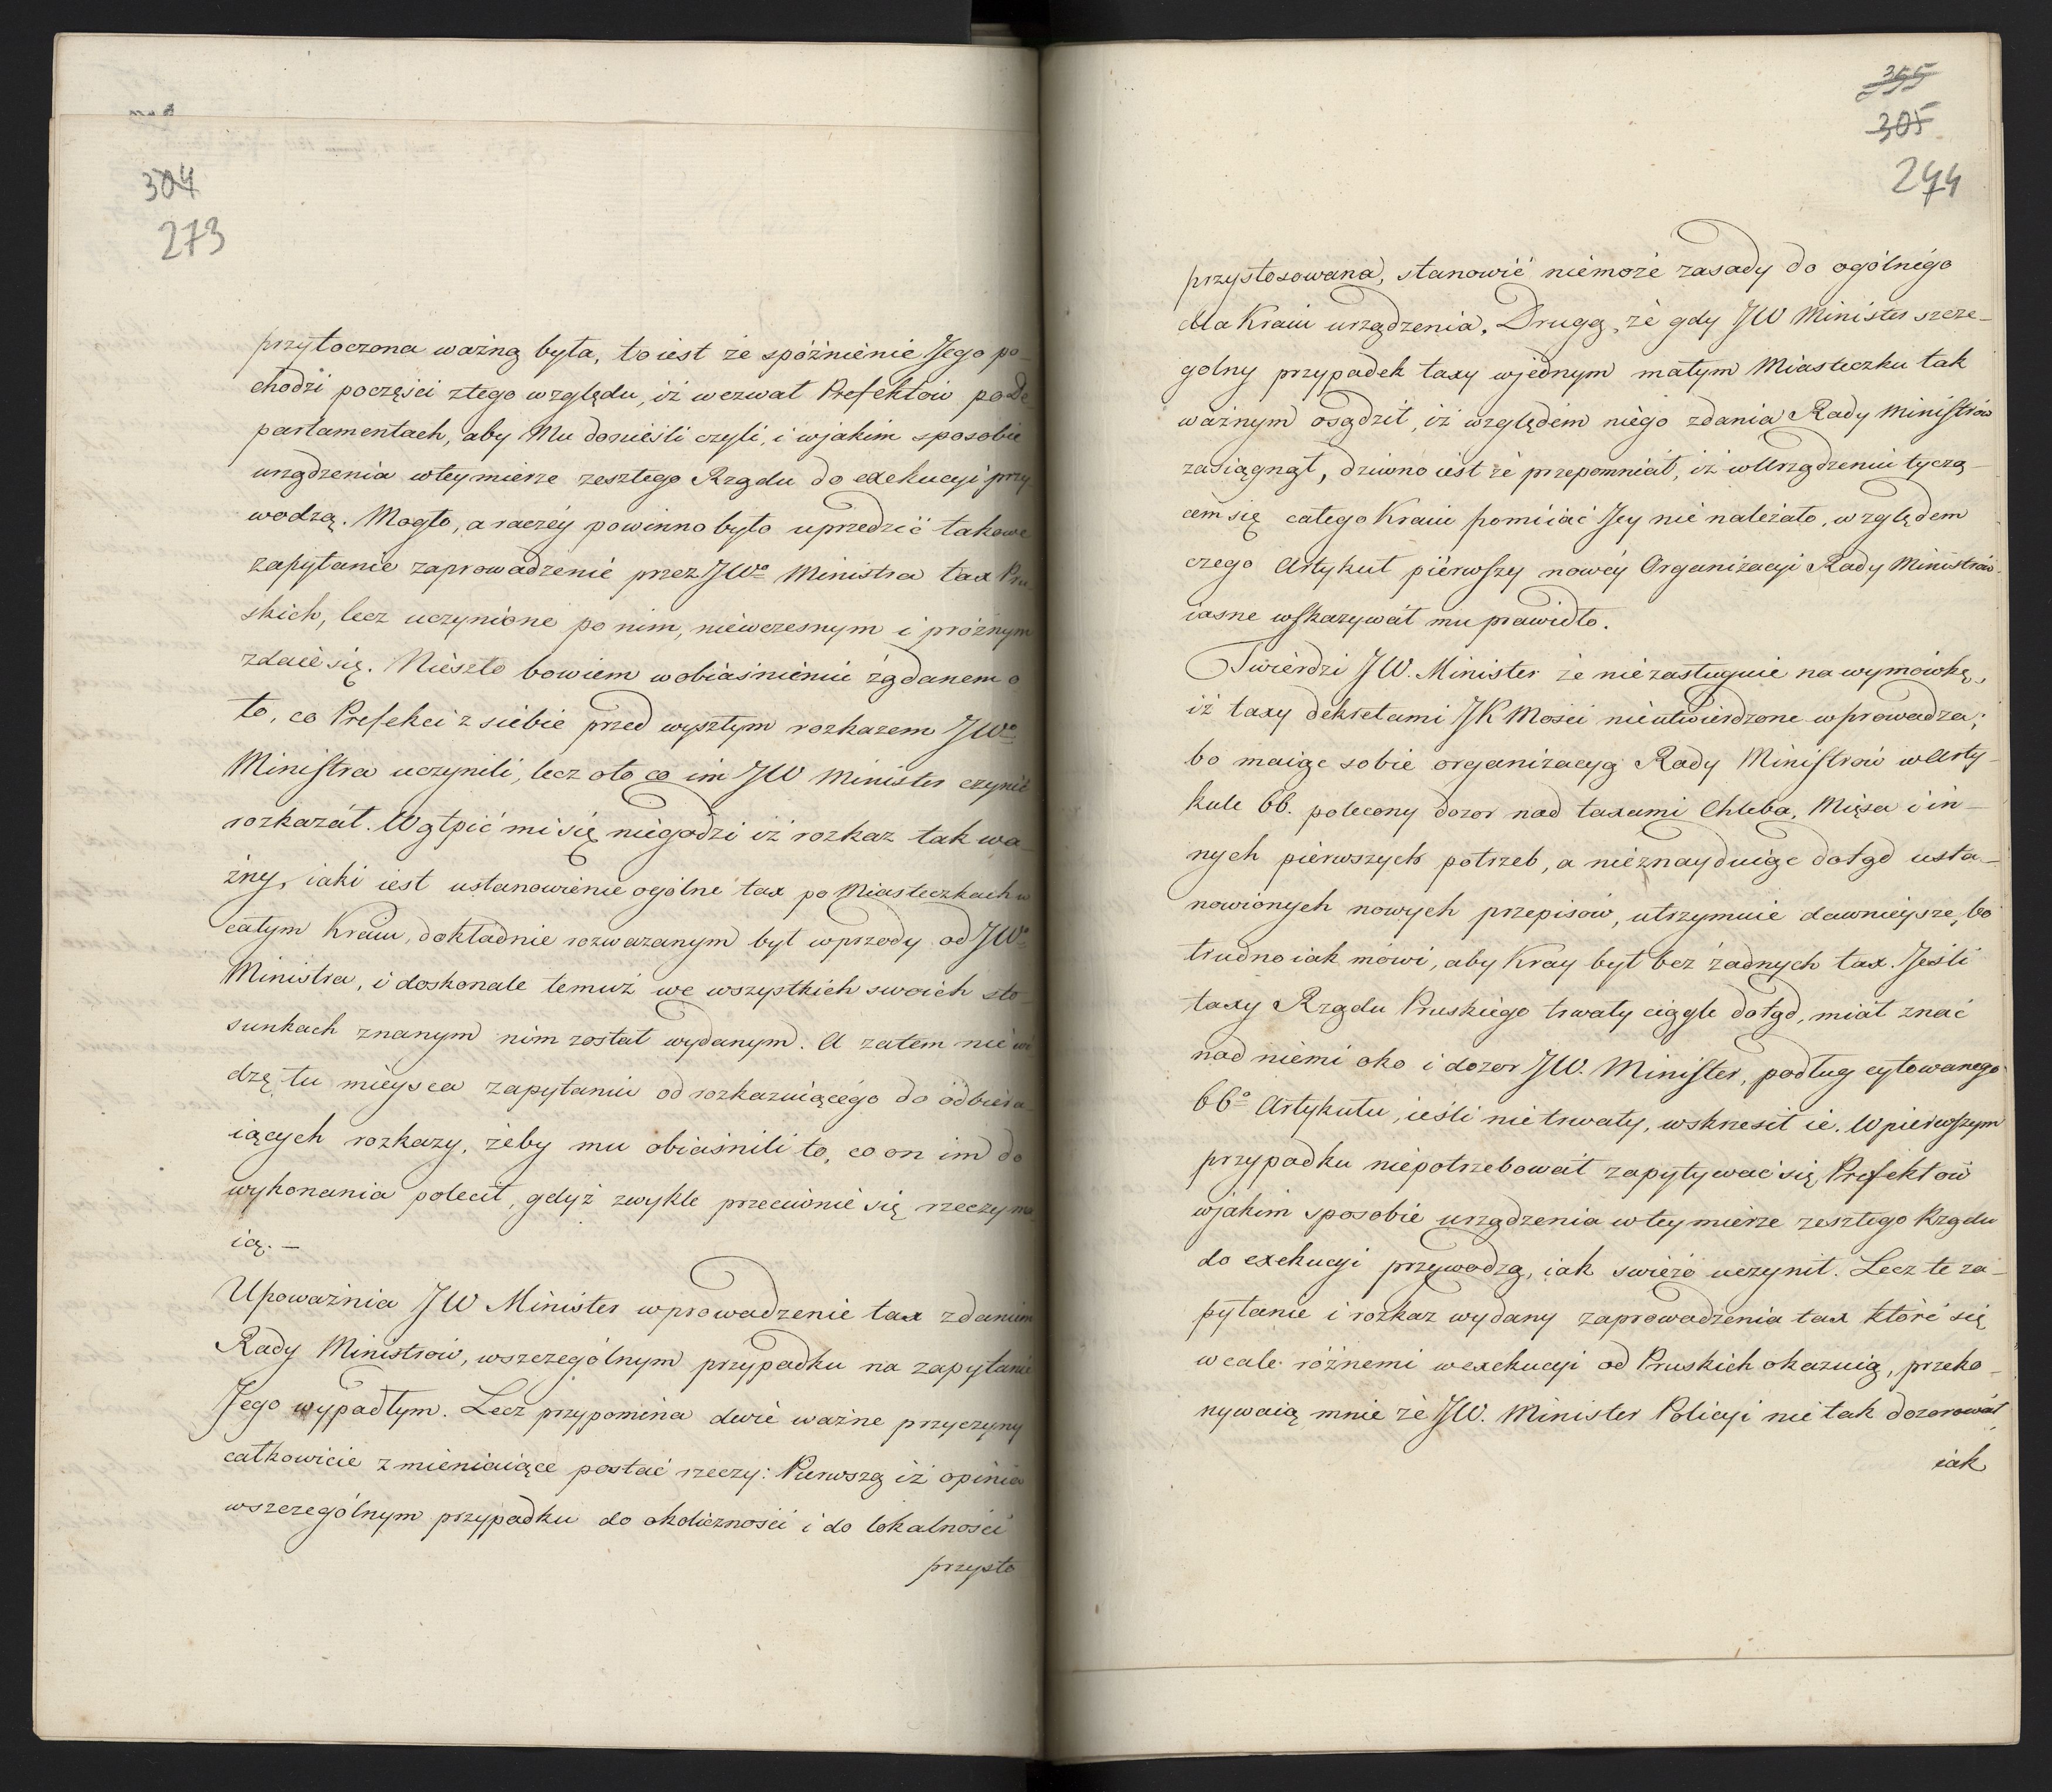 304
273
przytoczona ważną była, to iest że spóźnienie Jego po-
chodzi poczęści ztego względu, iż wezwał Prefektów po De
partamentach, aby Mu donieśli czyli, i wjakim sposobie
urządzenia wteymierze zeszłego Rządu do exekucyi przy
wodzą. Mogło, a raczéy powinno było uprzedzić takowe
zapytanie zaprowadzenie przez JWo Ministra tax Pru
skich, lecz uczynione po nim, niewczesnym i próżnym
zdaie się. Nieszło bowiem wobiaśnieniu żądanem o
to, co Prefekci z siebie przed wyszłym rozkazem JWo
Ministra uczynili, lecz oto co im JW Minister czynić
rozkazał. Wątpić mi się niegodzi iż rozkaz tak wa-
żny, iaki iest ustanowienie ogólne tax po Miasteczkach w
całym Kraiu, dokładnie rozwazanym był wprzody od JWo
Ministra, i doskonale temuż we wszystkich swoich sto-
sunkach znanym nim został wydanym. A zatem nie wi
dzę tu mieysca zapytaniu od rozkazuiącégo do odbiera-
iących rozkazy, żeby mu obiaśnili to, co on im do
wykonania polecił, gdyż zwykle przeciwnie się rzeczy ma
ią. —
Upoważnia JW Minister wprowadzenie tax zdaniem
Rady Ministrów, wszczególnym przypadku na zapytanie
Jego wypadłym. Lecz przypomina dwie ważne przyczyny
całkowicie zmieniaiące postać rzeczy: Pierwszą iż opinia
wszczególnym przypadku do okoliczności i do lokalności
przysto
355
305
244
przystosowana, stanowić niemoże zasady do ogólnégo
dla Kraiu urządzenia. Drugą, że gdy JW Minister szcze-
golny przypadek taxy wjednym małym Miasteczku tak
ważnym osądził, iż względem niego zdania Rady Ministrów
zasiągnął, dziwno iest że przepomniał, iż wUrządzeniu tyczą-
cem się całego Kraiu pomiiać Jey nie należało, względem
czego Artykuł piérwszy nowéy Organizacyi Rady Ministrów
iasne wskazywał mu prawidło.
Twierdzi JW. Minister że niezasługuie na wymówkę,
iż taxy dekretami JK Mości nieutwierdzone wprowadza;
bo maiąc sobie organizacyą Rady Ministrów wArty-
kule 66. polecony dozor nad taxami Chleba, Mięsa i in-
nych piérwszych potrzeb, a nieznayduiąc dotąd usta-
nowionych nowych przepisów, utrzymuie dawnieysze, bo
trudno iak mówi, aby Kray był bez żadnych tax. Jeśli
taxy Rządu Pruskiégo trwały ciągle dotąd, miał znać
nad niemi oko i dozor JW. Minister, podług cytowanego
66o Artykułu, ieśli nie trwały, wskrzesił ie. Wpierwszym
przypadku niepotrzebował zapytywać się Prefektów
wjakim sposobie urządzenia wteymierze zeszłego Rządu
do exekucyi przywodzą, iak swieżo uczynił. Lecz te za-
pytanie i rozkaz wydany zaprowadzenia tax które się
wcale różnemi wexekucyi od Pruskich okazuią, przeko-
nywaią mnie że JW. Minister Policyi nie tak dozorował
iak